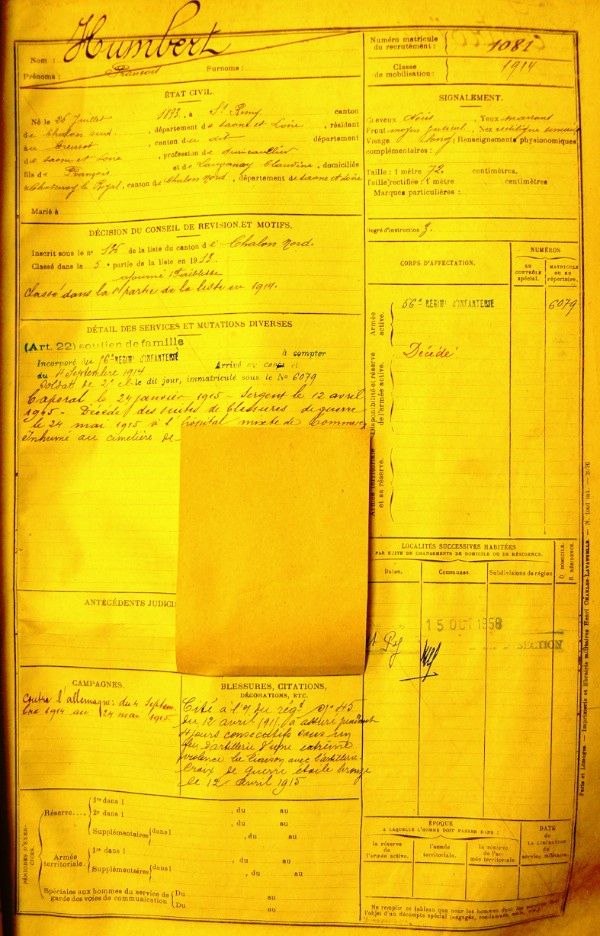 Nom : Humbert
Prénoms : François Surnoms :
Numéro matricule
du recrutement : 1081
Classe
de mobilisation : 1914
ÉTAT CIVIL.
Né le 26 Juillet 1893, à St Remy, canton
de Chalon sud, département de Saone et Loire, résidant
au Creusot, canton du dit, département
de Saone et Loire, profession de
fils de François et de Claudine, domiciliés
à Le Royal, canton de Chalon Nord, département de Saone et Loire
Marié à
SIGNALEMENT.
Cheveux Noirs Yeux marrons
Front moyen Nez rectiligne
Visage long Renseignements physionomiques
complémentaires :
Taille : 1 mètre 72 centimètres.
Taille rectifiée : 1 mètre centimètres
Marques particulières :
Degré d'instruction 3.
DÉCISION DU CONSEIL DE REVISION ET MOTIFS.
Inscrit sous le n° de la liste du canton de Chalon Nord.
Classé dans la 5e partie de la liste en 1913.
ajourné faiblesse
Classé dans la 1e partie de la liste en 1914.
DÉTAIL DES SERVICES ET MUTATIONS DIVERSES
(Art. 22) soutien de famille
Incorporé au 56e RÉGIMt D'INFANTERIE à compter
du 4 Septembre 1914 Arrivé au corps et
Soldat de 2e cl. le dit jour, immatriculé sous le No 6079
Caporal le 24 janvier 1915 - Sergent le 12 avril
1915 - Décédé des suites de blessures de guerre
le 24 mai 1915 à l'hopital mixte de Commercy
Inhumé au cimetière de
CORPS D'AFFECTATION.
NUMÉROS
AU CONTRÔLE spécial.
MATRICULE OU AU répertoire.
Armée active.
56e RÉGIMt D'INFANTERIE 6079
Disponibilité et réserve de l'armée active.
Décédé
Armée territoriale et sa réserve.
LOCALITÉS SUCCESSIVES HABITÉES
PAR SUITE DE CHANGEMENTS DE DOMICILE OU DE RÉSIDENCE.
Dates. Communes. Subdivisions de région D. DOMICILE. R. RÉSIDENCE.
15 OCT 1958
SECTION
ANTÉCÉDENTS JUDICI
CAMPAGNES.
Contre l'allemagne : du 4 Septem
bre 1914 au 24 mai 1915
BLESSURES, CITATIONS,
DÉCORATIONS, ETC.
Cité à l'O. du régt n° 45
du 12 avril 1915 à assuré pendant
4 jours consécutifs sous un
feu d'artillerie d'une extrême
violence la liaison avec l'artillerie
Croix de guerre étoile bronze
le 12 Avril 1915
PÉRIODES D'EXERCICES.
Réserve....
1re dans l , du au
2e dans l , du au
Supplémentaires (dans l , du au
Armée territoriale.
1re dans l , du au
Supplémentaires (dans l , du au
Spéciales aux hommes du service de
garde des voies de communication
Du au
Du au
ÉPOQUE
A LAQUELLE L'HOMME DOIT PASSER DANS :
la réserve de l'armée active.
l'armée territoriale.
la réserve de l'armée territoriale
DATE DE LA LIBÉRATION du service militaire.
Paris et Limoges. — Imprimerie et librairie militaires Henri CHARLES-LAVAUZELLE.